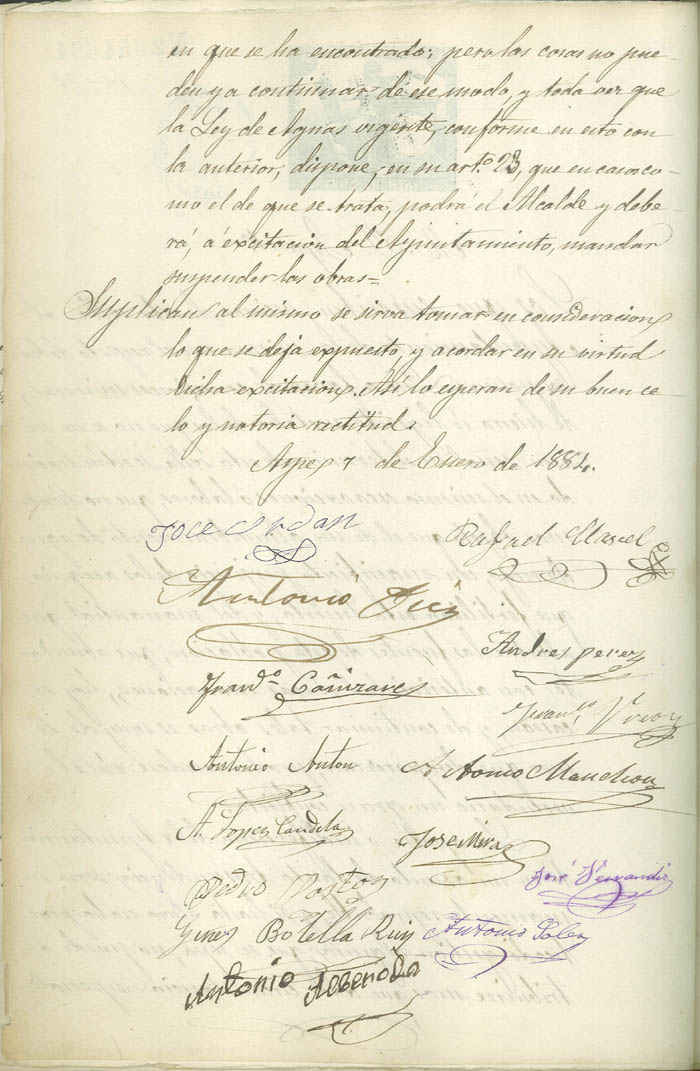 en que se ha encontrado; pero las cosas no pue-
den ya continuar de ese modo, y toda vez que
la Ley de Aguas vigente, conforme en esto con
la anterior, dispone, en su art.º 23, que en casos co-
mo el de que se trata, podrá el Alcalde y debe-
rá, á excitacion del Ayuntamiento, mandar
suspender las obras=
Suplican al mismo se sirva tomar en consideracion
lo que se deja expuesto, y acordar en su virtud
dicha excitacion. Así lo esperan de su buen ce-
lo y notoria rectitud.
Aspe 7 de Enero de 1884.
Jose Cerdan
Rafael
Antonio
Andres perez
Fran.co Cañizares
Antonio Anton
Antonio Manchon
A. Lopez Candela
Jose Mira
José Ferrandiz
Pedro Pastor
Gines Botella Ruiz
Antonio Soler
Antonio Alberola